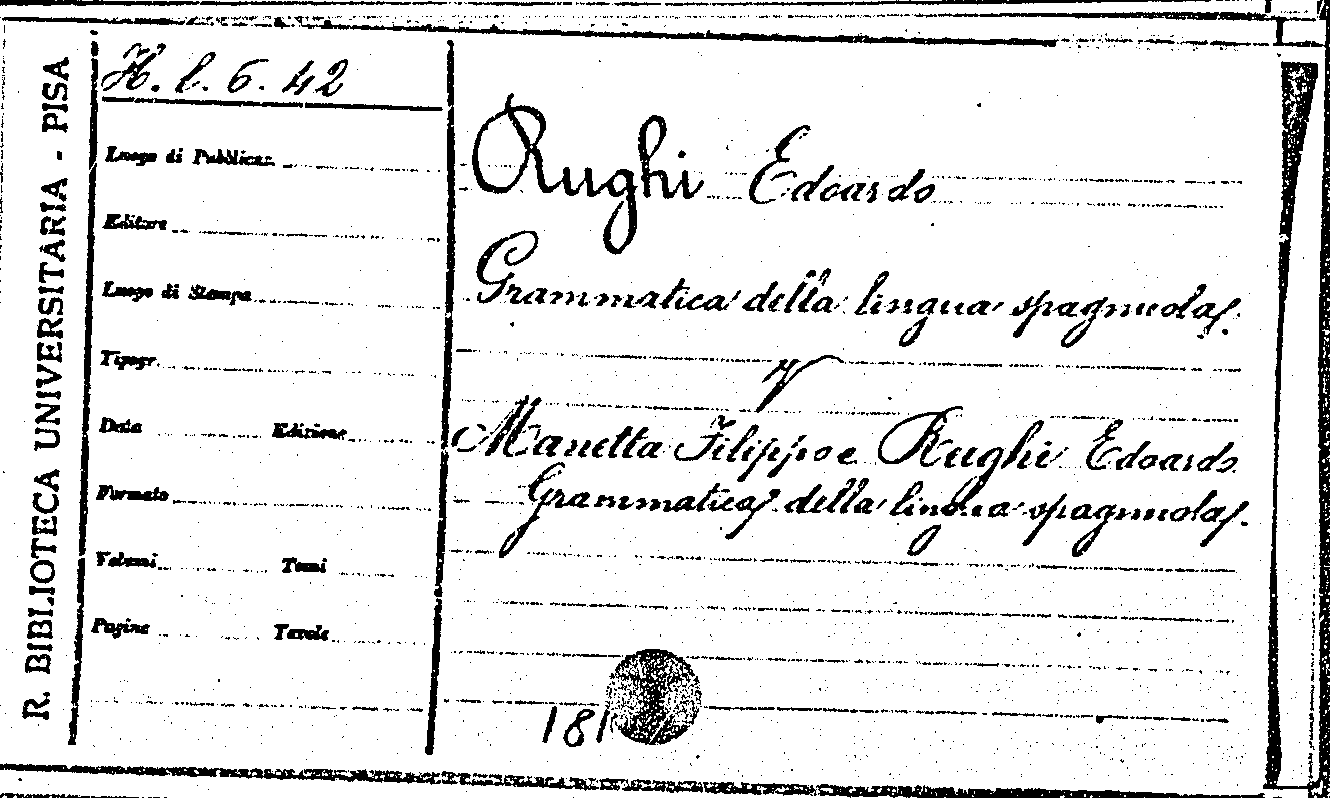 R. BIBLIOTECA UNIVERSITARIA - PISA
H. l. 6. 42
Luogo di Pubblicaz.
Editore
Luogo di Stampa
Tipogr.
Data Edizione
Formato
Volumi Tomi
Pagine Tavole
Rughi Edoardo
Grammatica della lingua spagnuola.
V
Manetta Filippo e Rughi Edoardo
Grammatica della lingua spagnuola.
181